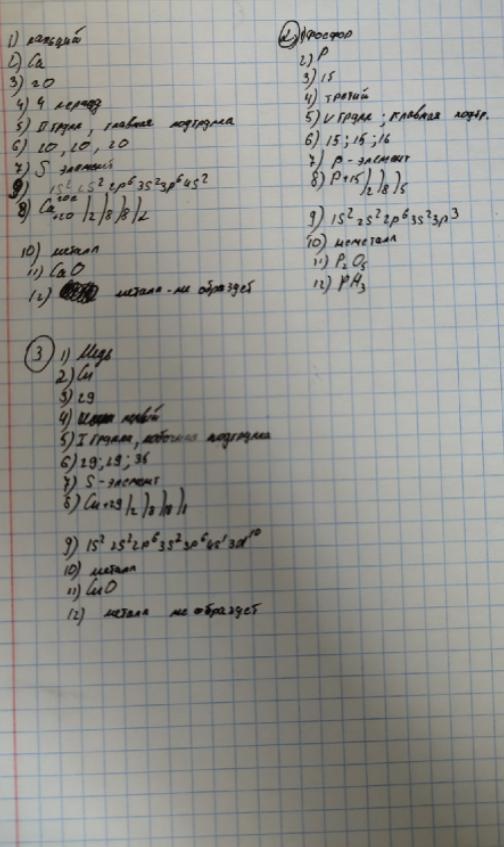 1) кальций
2) Ca
3) 20
4) 4 период
5) II группа, главная подгруппа
6) 20, 20, 20
7) S элемент
9) 1S² 2S² 2p⁶ 3S² 3p⁶ 4S²
8) Ca +20 )2 )8 )8 )2
10) металл
11) CaO
12) металл - не образует
2 1) Фосфор
2) P
3) 15
4) третий
5) V групп; главная подгр.
6) 15; 15; 16
7) p-элемент
8) P+15 )2 )8 )5
9) 1S² 2S² 2p⁶ 3S² 3p³
10) неметалл
11) P₂O₅
12) PH₃
3 1) Медь
2) Cu
3) 29
4)
5) I группа, побочная подгруппа
6) 29; 29; 35
7) S-элемент
8) Cu+29 )2 )8 )18 )1
9) 1S² 2S² 2p⁶ 3S² 3p⁶ 4S¹ 3d¹⁰
10) металл
11) CuO
12) металл не образует